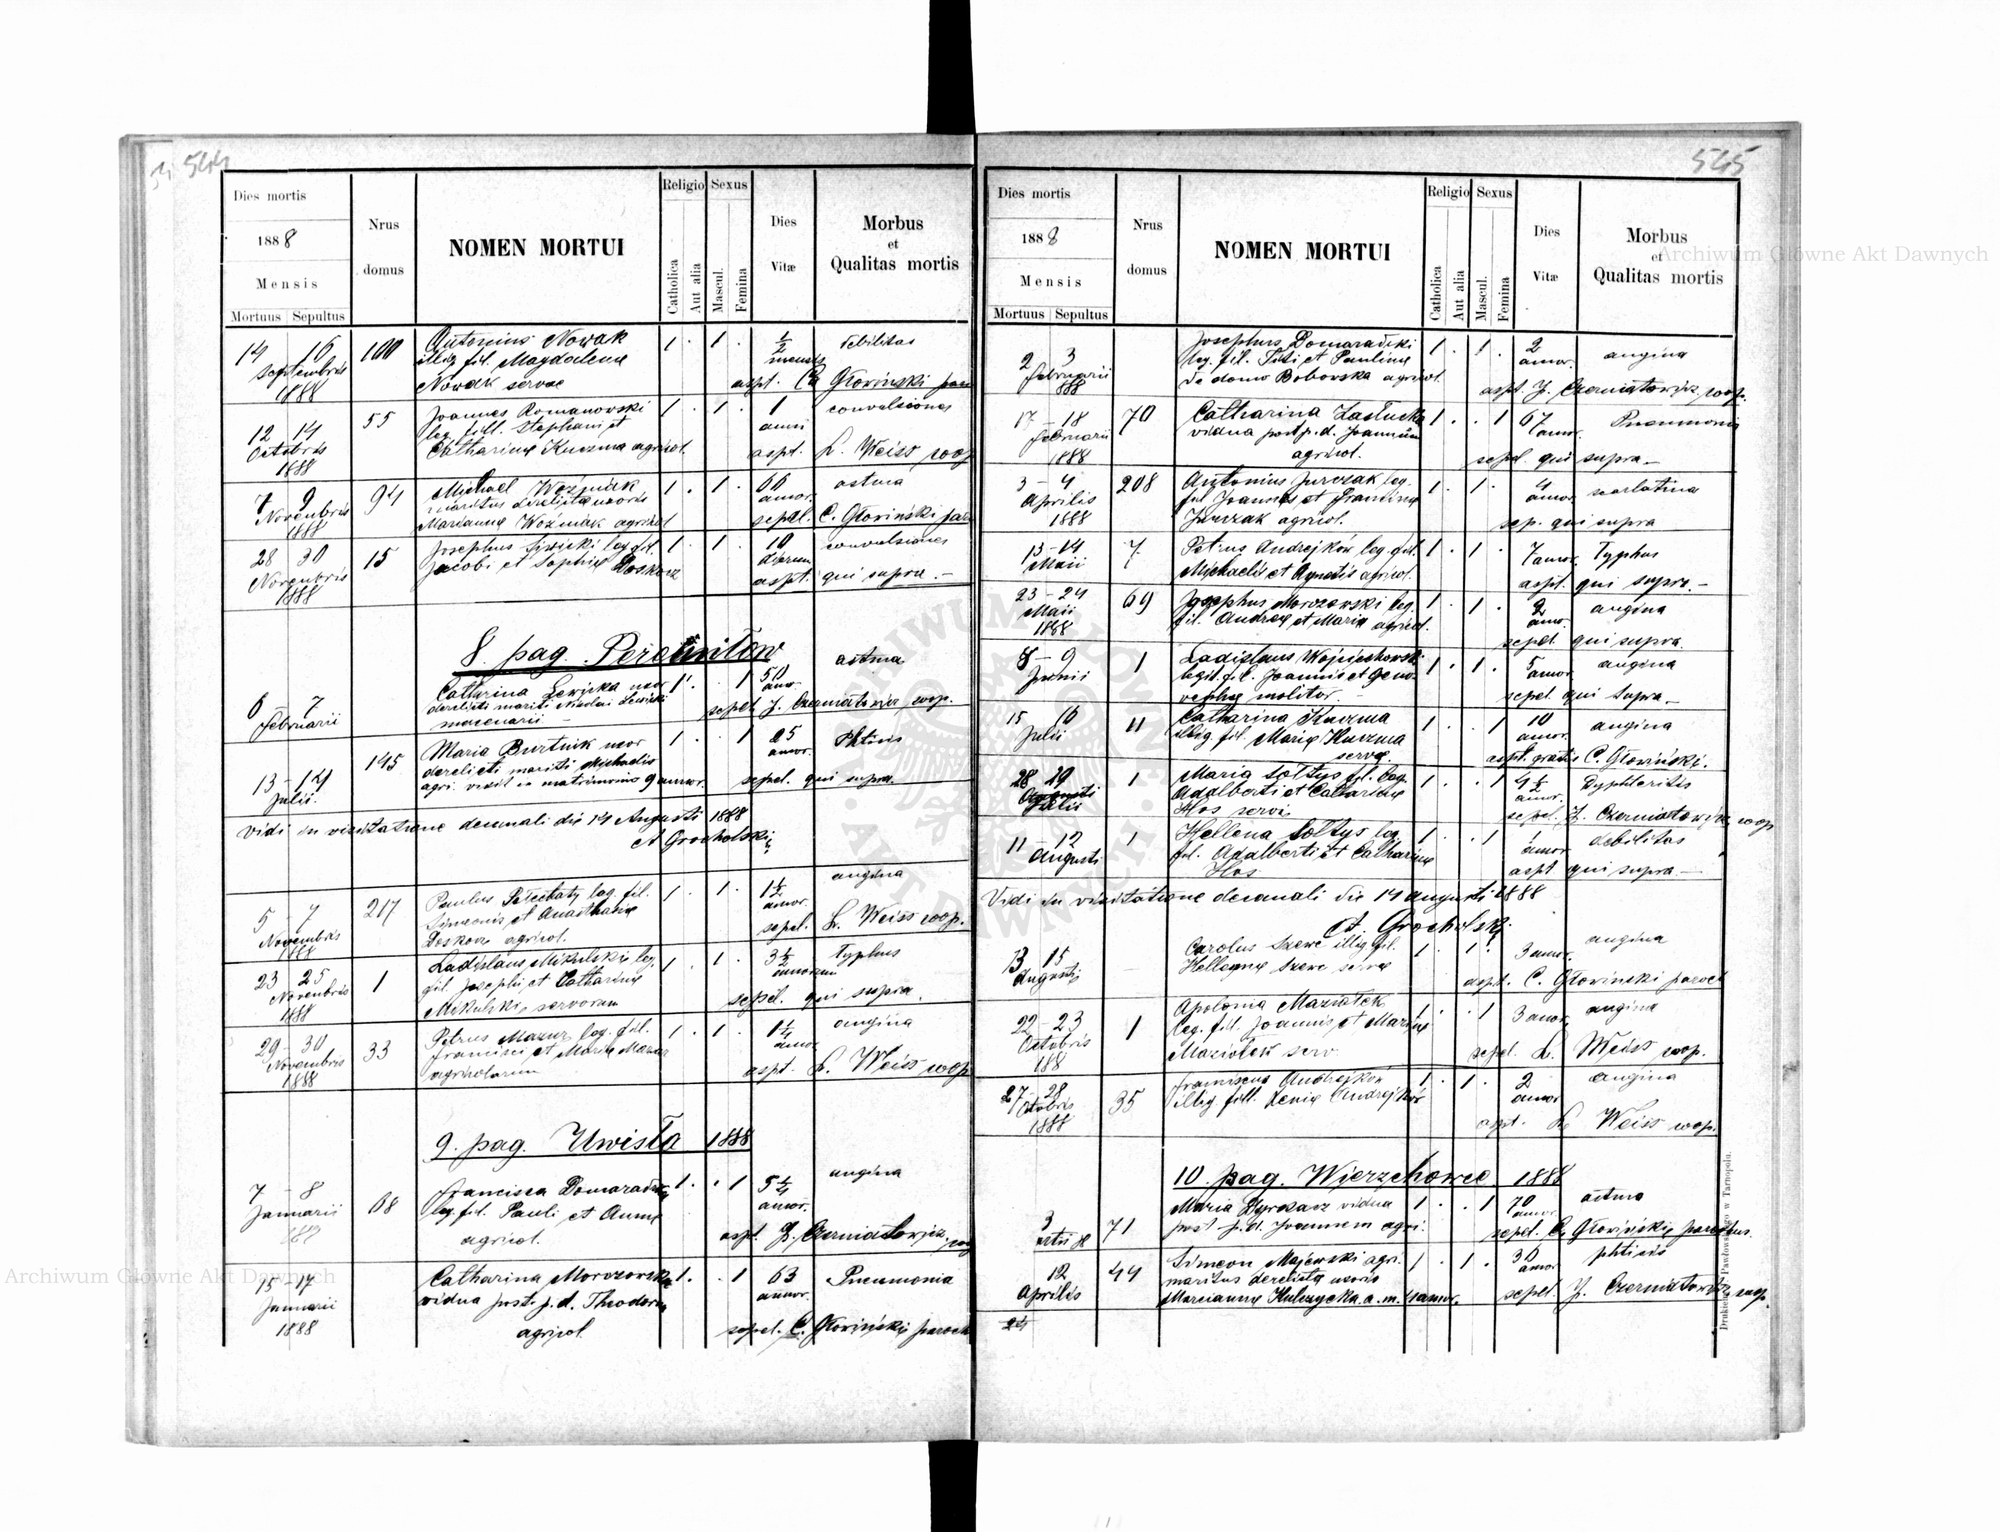 544
Dies mortis
1888
Mensis
Mortuus Sepultus
Nrus
domus
NOMEN MORTUI
Religio
Catholica
Aut alia
Sexus
Mascul.
Femina
Dies
Vitæ
Morbus
et
Qualitas mortis
14 16
Septembris
1888
100
Antonius Nowak
illeg. fil. Magdalena
Nowak servae
1 . 1 .
1/2
mensis
debilitas
aspt. C. Głowiński par
12 14
Octobris
1888
55
Joannes Romanowski
leg. fill. Stephani et
Catharinæ Kuczma agricol.
1 . 1 .
1
anni
convulsiones
aspt. L. Weiss coop
7 9
Novembris
1888
94
Michael Woźniak
maritus derelicta uxoris
Mariannæ Woźniak agricol
1 . 1 .
66
annor.
astma
sepel. C. Głowiński par
28 30
Novembris
1888
15
Josephus leg. fil.
Jacobi et Sophiæ
1 . 1 .
10
dierum
convulsiones
aspt. qui supra.—
8. pag.
6 7
Februarii
Catharina Lewicka uxor
derelicti mariti Nicolai Lewicki
mercenarii —
1 . . 1
50
annor.
astma
sepel. J. Czerniatowicz, coop.
13 - 14
Julii
145
Maria Burtnik uxor
derelicti mariti Michaelis
agri. vixit in matrimonio 9 annor.
1 . . 1
25
annor.
Phtisis
sepel. qui supra.
Vidi in visitatione decanali die 14 Augusti 1888
A Grocholski
5 - 7
Novembris
1888
217
Paulus leg. fil.
Simeonis et Anasthasiæ
agricol.
1 . 1 .
1 1/2
annor.
angina
sepel. L. Weiss coop.
23 25
Novembris
1888
1
Ladislaus Mikulski leg.
fil. Josephi et Catharinæ
Mikulski, servorum
1 . 1 .
3 1/2
annorum
Typhus
sepel. qui supra.
29 - 30
Novembris
1888
33
Petrus Mazur leg. fil.
Francisci et Mariæ Mazur
agricolarum
1 . 1 .
1 1/4
annor
angina
aspt. L. Weiss coop
9. pag. Uwisła 1888
7 - 8
Januarii
68
Francisca Domaradzka
leg. fil. Pauli et Annæ
agricol.
1 . . 1
5 1/4
annor.
angina
aspt. J. Czerniatowicz, coop
15 - 17
Januarii
1888
Catharina Morozowska
vidua post. p. d. Theodorum
agricol
1 . . 1
63
annor.
Pneumonia
sepel. C. Głowiński paroch
545
Dies mortis
1888
Mensis
Mortuus Sepultus
Nrus
domus
NOMEN MORTUI
Religio
Catholica
Aut alia
Sexus
Mascul.
Femina
Dies
Vitæ
Morbus
et
Qualitas mortis
2 3
Februarii
888
Josephus Domaradzki
leg. fil. Titi et Paulinæ
de domo Bobowska agricol.
1 . 1 .
2
annor.
angina
aspt. J. Czerniatowicz, coop.
17 - 18
Februarii
1888
70
Catharina Zastucka
vidua post p. d. Joannum
agricol.
1 . . 1
67
annor.
Pneumonia
sepel. qui supra.—
3 - 4
Aprilis
1888
208
Antonius Jurczak leg.
fil. Joannes et Franciscæ
Jurczak agricol.
1 . 1 .
4
annor.
scarlatina
sep. qui supra
13 - 14
Maii
7
Petrus Andrejków leg. fil.
Michaelis et Agnetis agricol.
1 . 1 .
7 annor.
Typhus
aspt. qui supra.—
23 - 24
Maii
1888
69
Josephus Morozowski leg.
fil. Andreæ et Mariæ agricol.
1 . 1 .
2
annor.
angina
sepel. qui supra.
8 - 9
Junii
1
Ladislaus Wojciechowski
legit. fil. Joannis et Geno
vephæ molitor —
1 . 1 .
5
annor.
angina
sepel. qui supra.—
15 16
Julii
11
Catharina Kuczma
illeg. fil. Mariæ Kuczma
servæ.
1 . . 1
10
annor.
angina
aspt. gratis C. Głowiński.
28 29
Augusti
Julii
1
Maria Sołtys fil. leg.
Adalberti et Catharinæ
Hos servi
1 . . 1
4 1/2
annor.
Dyphteritis
sepel. J. Czerniatowicz, coop
11 12
Augusti
1
Hellena Sołtys leg.
fil. Adalberti et Catharinæ
Hos
1 . . 1
annor.
debilitas
aspt qui supra.—
Vidi in visitatione decanali die 14 augusti 1888
A. Grocholski
13 15
Augusti
Carolus Szewc illeg. fil.
Hellenæ Szewc servæ
1 . 1 .
3 annor.
angina
aspt. C. Głowiński paroch
22 - 23
Octobris
188
1
Apolonia Maziołek
leg. fill. Joannis et Mariæ
Maziołek serv.
1 . . 1
3 annor.
angina
sepel. L. Weiss coop.
27 - 28
Octobris
1888
35
Franciscus Andrejków
illeg. fill. Xeniæ Andrejków
1 . 1 .
2
annor
angina
aspt. L. Weiss coop.
10. pag. Wierzchowce 1888
3
71
Maria vidua
post p. d. Joannem agri.
1 . . 1
70
annor.
astma
sepel. C. Głowiński parochus.
12
Aprilis
44
Simeon Majewski agri.
maritus derelicta uxoris
Mariannæ Kulczycka a. m. annor.
1 . 1 .
36
annor.
phtisis
sepel. J. Czerniatowicz coop.
24
Drukiem Pawłowskiego w Tarnopolu.
Archiwum Główne Akt Dawnych
Archiwum Główne Akt Dawnych
ARCHIWUM GŁÓWNE
AKT DAWNYCH